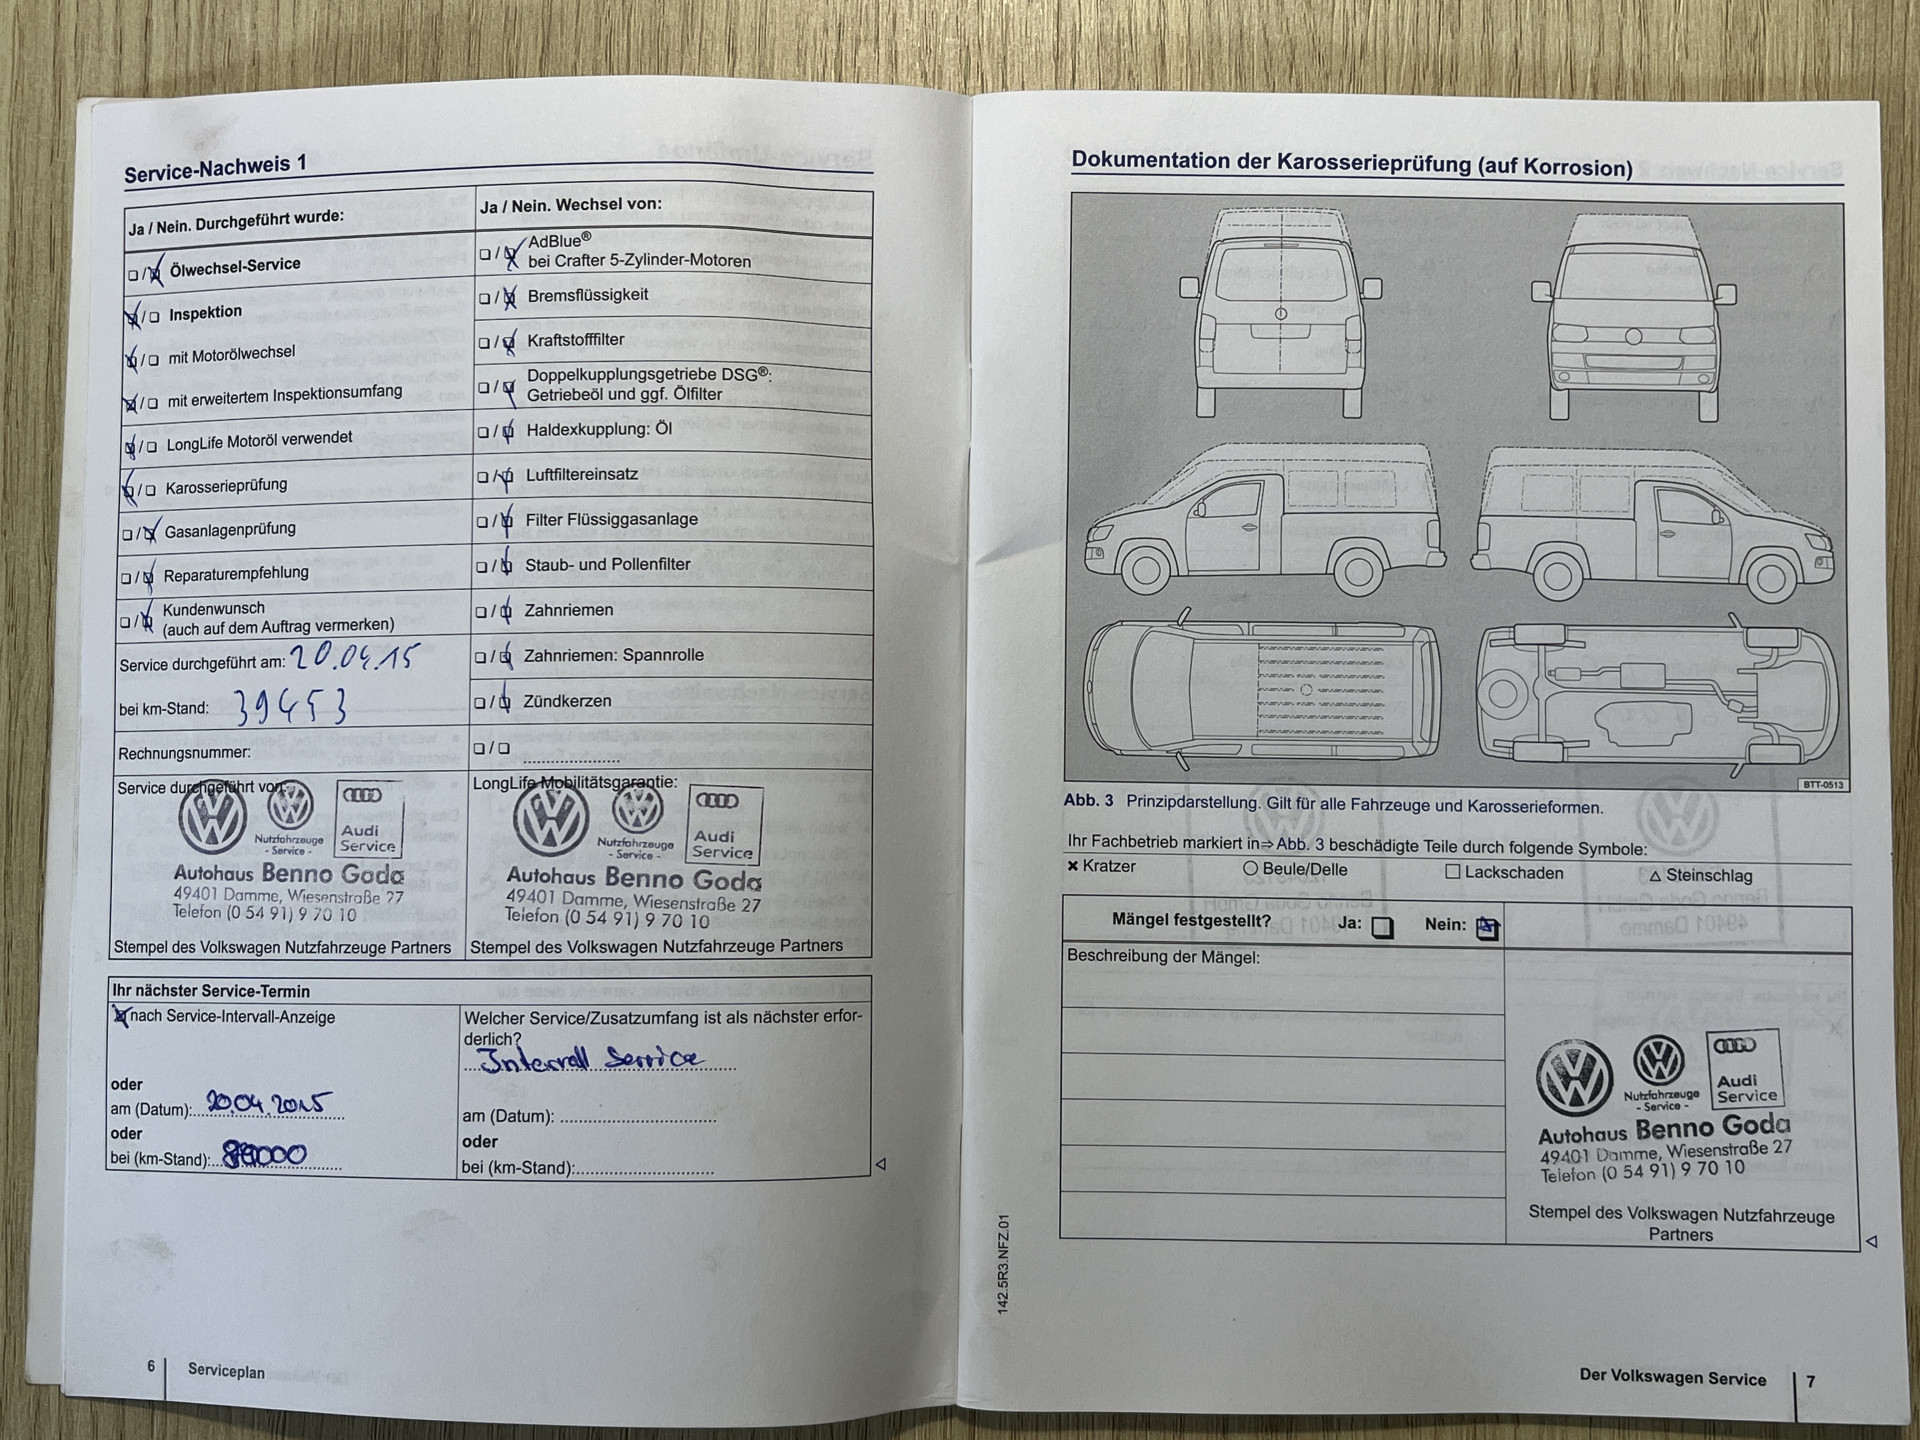 Service-Nachweis 1
Ja / Nein. Durchgeführt wurde:
Ölwechsel-Service
Inspektion
mit Motorölwechsel
mit erweitertem Inspektionsumfang
LongLife Motoröl verwendet
Karosserieprüfung
Gasanlagenprüfung
Reparaturempfehlung
Kundenwunsch
(auch auf dem Auftrag vermerken)
Service durchgeführt am: 20.04.15
bei km-Stand: 39453
Rechnungsnummer:
Service durchgeführt von:
Nutzfahrzeuge
- Service -
Audi
Service
Autohaus Benno Goda
49401 Damme, Wiesenstraße 27
Telefon (0 54 91) 9 70 10
Stempel des Volkswagen Nutzfahrzeuge Partners
Ja / Nein. Wechsel von:
AdBlue®
bei Crafter 5-Zylinder-Motoren
Bremsflüssigkeit
Kraftstofffilter
Doppelkupplungsgetriebe DSG®:
Getriebeöl und ggf. Ölfilter
Haldexkupplung: Öl
Luftfiltereinsatz
Filter Flüssiggasanlage
Staub- und Pollenfilter
Zahnriemen
Zahnriemen: Spannrolle
Zündkerzen
LongLife Mobilitätsgarantie:
Nutzfahrzeuge
- Service -
Audi
Service
Autohaus Benno Goda
49401 Damme, Wiesenstraße 27
Telefon (0 54 91) 9 70 10
Stempel des Volkswagen Nutzfahrzeuge Partners
Ihr nächster Service-Termin
nach Service-Intervall-Anzeige
oder
am (Datum): 20.04.2015
oder
bei (km-Stand):
Welcher Service/Zusatzumfang ist als nächster erfor-
derlich?
Intervall Service
am (Datum):
oder
bei (km-Stand):
6
Serviceplan
Dokumentation der Karosserieprüfung (auf Korrosion)
BTT-0513
Abb. 3 Prinzipdarstellung. Gilt für alle Fahrzeuge und Karosserieformen.
Ihr Fachbetrieb markiert in⇒Abb. 3 beschädigte Teile durch folgende Symbole:
× Kratzer ○ Beule/Delle □ Lackschaden △ Steinschlag
Mängel festgestellt? Ja: Nein:
Beschreibung der Mängel:
Nutzfahrzeuge
- Service -
Audi
Service
Autohaus Benno Goda
49401 Damme, Wiesenstraße 27
Telefon (0 54 91) 9 70 10
Stempel des Volkswagen Nutzfahrzeuge
Partners
142.5R3.NFZ.01
Der Volkswagen Service
7